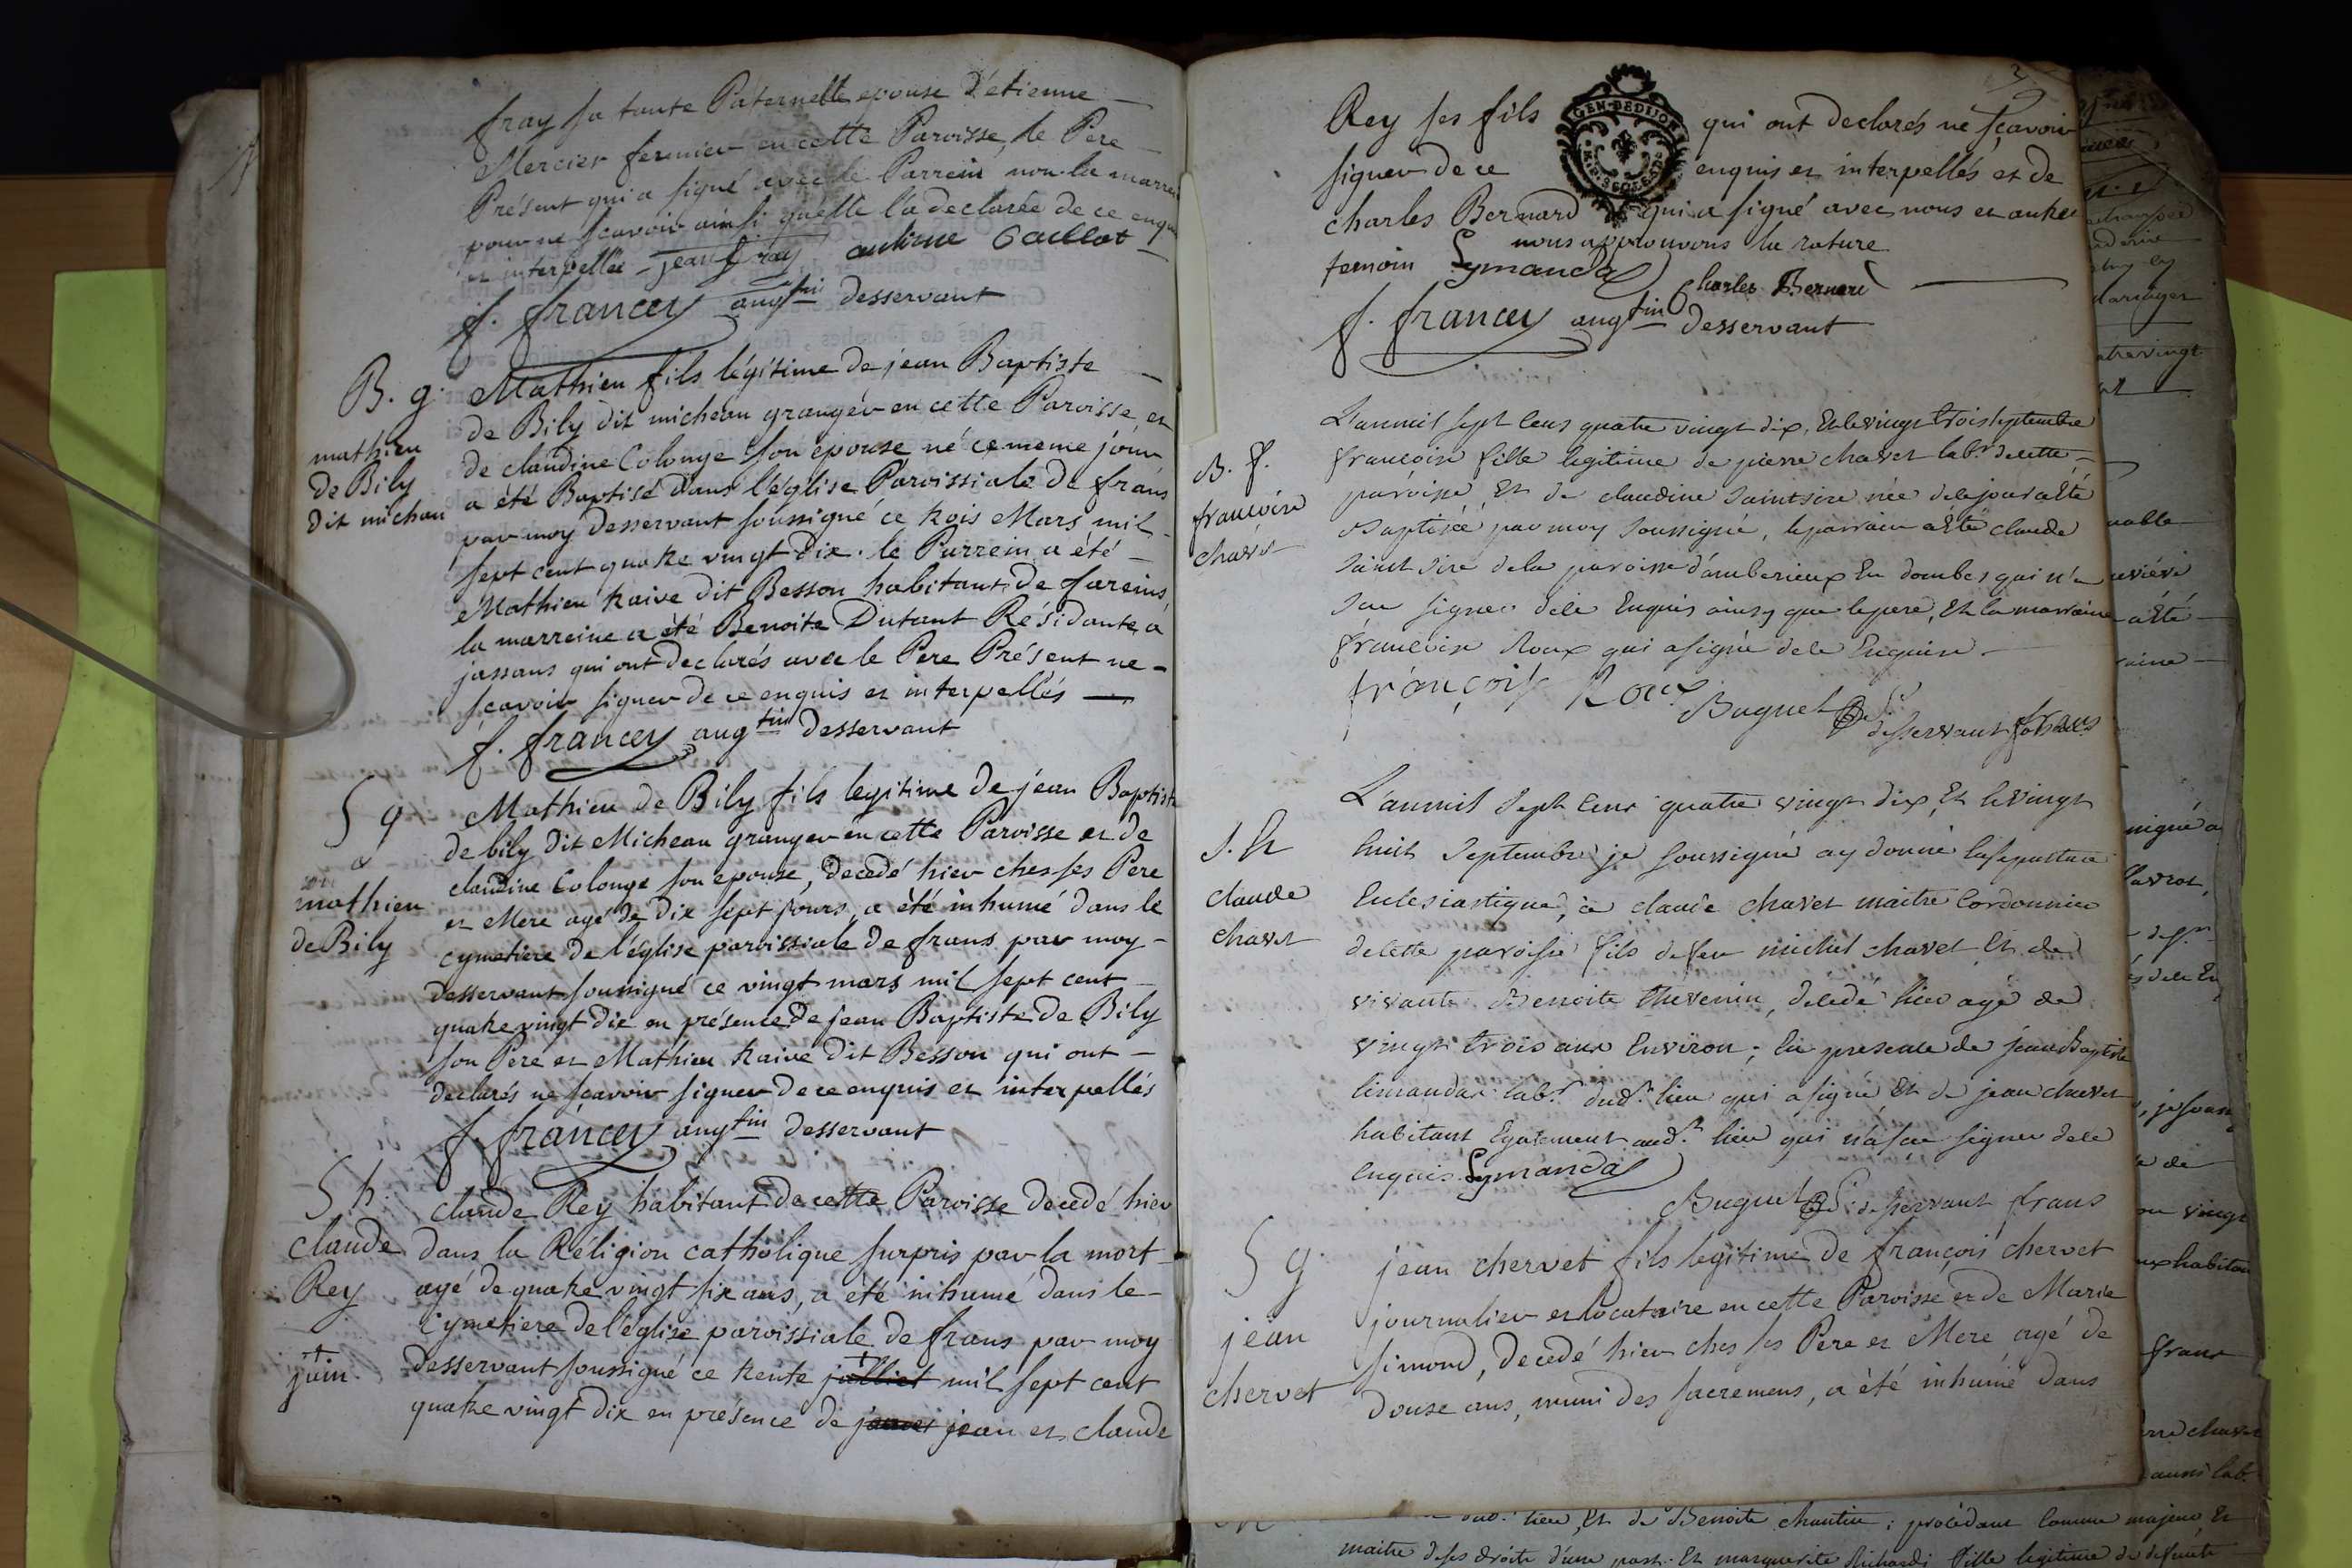 fray sa tante Paternelle epouse d'etienne
Mercier fermier en cette Paroisse, le Pere
Présent qui a signé avec le Parrein non la marre
pour ne sçavoir ainsi quelle l'a declarée de ce enqu
et interpellée jean fray antisne Gaillot
f. francey augtin desservant
B. g.
mathieu
de Bily
dit michau
Mathieu fils légitime de jean Baptiste
de Bily dit micheau granger en cette Paroisse, et
de claudine Colonge son épouse né ce meme jour
a été Baptisé dans l'église Paroissiale de frans
par moy desservant soussigné ce trois Mars mil
sept cent quatre vingt dix. le Parrein a été
Mathieu traive dit Besson habitant de fareins
la marreine a été Benoite Dutant Résidante a
jassans qui ont declarés avec le Pere Présent ne
sçavoir signer de ce enquis et interpellés
f. francey augtin desservant
S g
mathieu
de Bily
Mathieu de Bily fils legitime de jean Baptiste
de bily dit Micheau granger en cette Paroisse et de
claudine Colonge son epouse, decedé hier ches ses Pere
et Mere agé de dix sept jours, a été inhumé dans le
cymetiere de l'église paroissiale de frans par moy
desservant soussigné ce vingt mars mil sept cent
quatre vingt dix en présence de jean Baptiste de Bily
son Pere et Mathieu traive dit Besson qui ont
declarés ne sçavoir signer de ce enquis et interpellés
f. francey augtin desservant
S h.
claude
Rey
+
juin.
claude Rey habitant de cette Paroisse decedé hier
dans la Réligion catholique surpris par la mort
agé de quatre vingt six ans, a été inhumé dans le
Cymetiere de l'église paroissiale de frans par moy
desservant soussigné ce trente julliet mil sept cent
quatre vingt dix en présence de jean et claude
2
Rey ses fils qui ont declarés ne sçavoir
GEN. DE DIJON
signer de ce enquis et interpellés et de
charles Bernard qui a signé avec nous et autre
nous approuvons la rature
temoin Lymandas Charles Bernard
f. francey augtin desservant
B. f.
francoise
chavet
L'an mil sept cens quatre vingt dix, Et le vingt trois septembre
francoise fille legitime de pierre chavet labr. de cette
paroisse, Et de claudine Saintsire née de ce jour a Eté
Baptisée par moy soussigné, le parrain a Eté claude
Saint Sire de la paroisse d'amberieux En dombes qui n'a
sçu signer de ce Enquis ainsy que le pere, Et la marraine
francoise Roux qui a signé de ce Enquise.
françoise Roux
Buguet desservant frans
S. h
claude
chavet
L'an mil sept cens quatre vingt dix, Et le vingt
huit Septembre je soussigné ay donné la sepulture
Eclesiastique, a claude chavet maitre Cordonnier
de cette paroisse fils de feu michel chavet Et de
vivante Benoite thevenin, decedé hier agé de
vingt trois ans Environ; En presence de jean Baptiste
limandas labr. dudt. lieu qui a signé Et de jean chavet
habitant Egalement audt. lieu qui n'a sçu signer de ce
enquis. Lymandas
Buguet desservant frans
S g.
jean
chervet
jean chervet fils legitime de françois chervet
journalier et locataire en cette Paroisse et de Marie
simond, decedé hier ches ses Pere et Mere, agé de
douse ans, muni des sacremens, a été inhumé dans
lieu, Et de Benoite chantin; procédant comme majeur, Et
maitre de ses droits d'une part. Et marguerite Richardi fille legitime de defunte